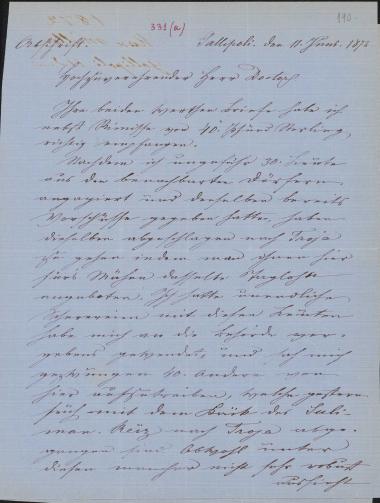 190.
331 (a)
Abschrift.
Gallipoli, den 11 Juni. 1873
Hochzuverehrender Herr Doctor
Ihre beiden werthen Briefe habe ich
nebst Rimesse von 40. Pfund Sterling,
richtig empfangen.
Nachdem ich ungefähr 30. Leute
aus den benachbarten Dörfern
engagiert und denselben bereits
Vorschüsse gegeben hatte, haben
dieselben abgeschlagen nach Troja
zu gehen indem man ihnen hier
fürs Mähen dasselbe Taglohn
angeboten. Ich hatte unendliche
Scherereien mit diesen Leuten
habe mich an die Behörde ver-
gebens gewendet, und sah mich
gezwungen 40. Andere von
hier aufzutreiben, welche gestern
früh mit dem Kaik des Suli-
man Reiz nach Troja abge-
gangen sind Obwohl unter
diesen mancher nicht sehr robust
aussieht